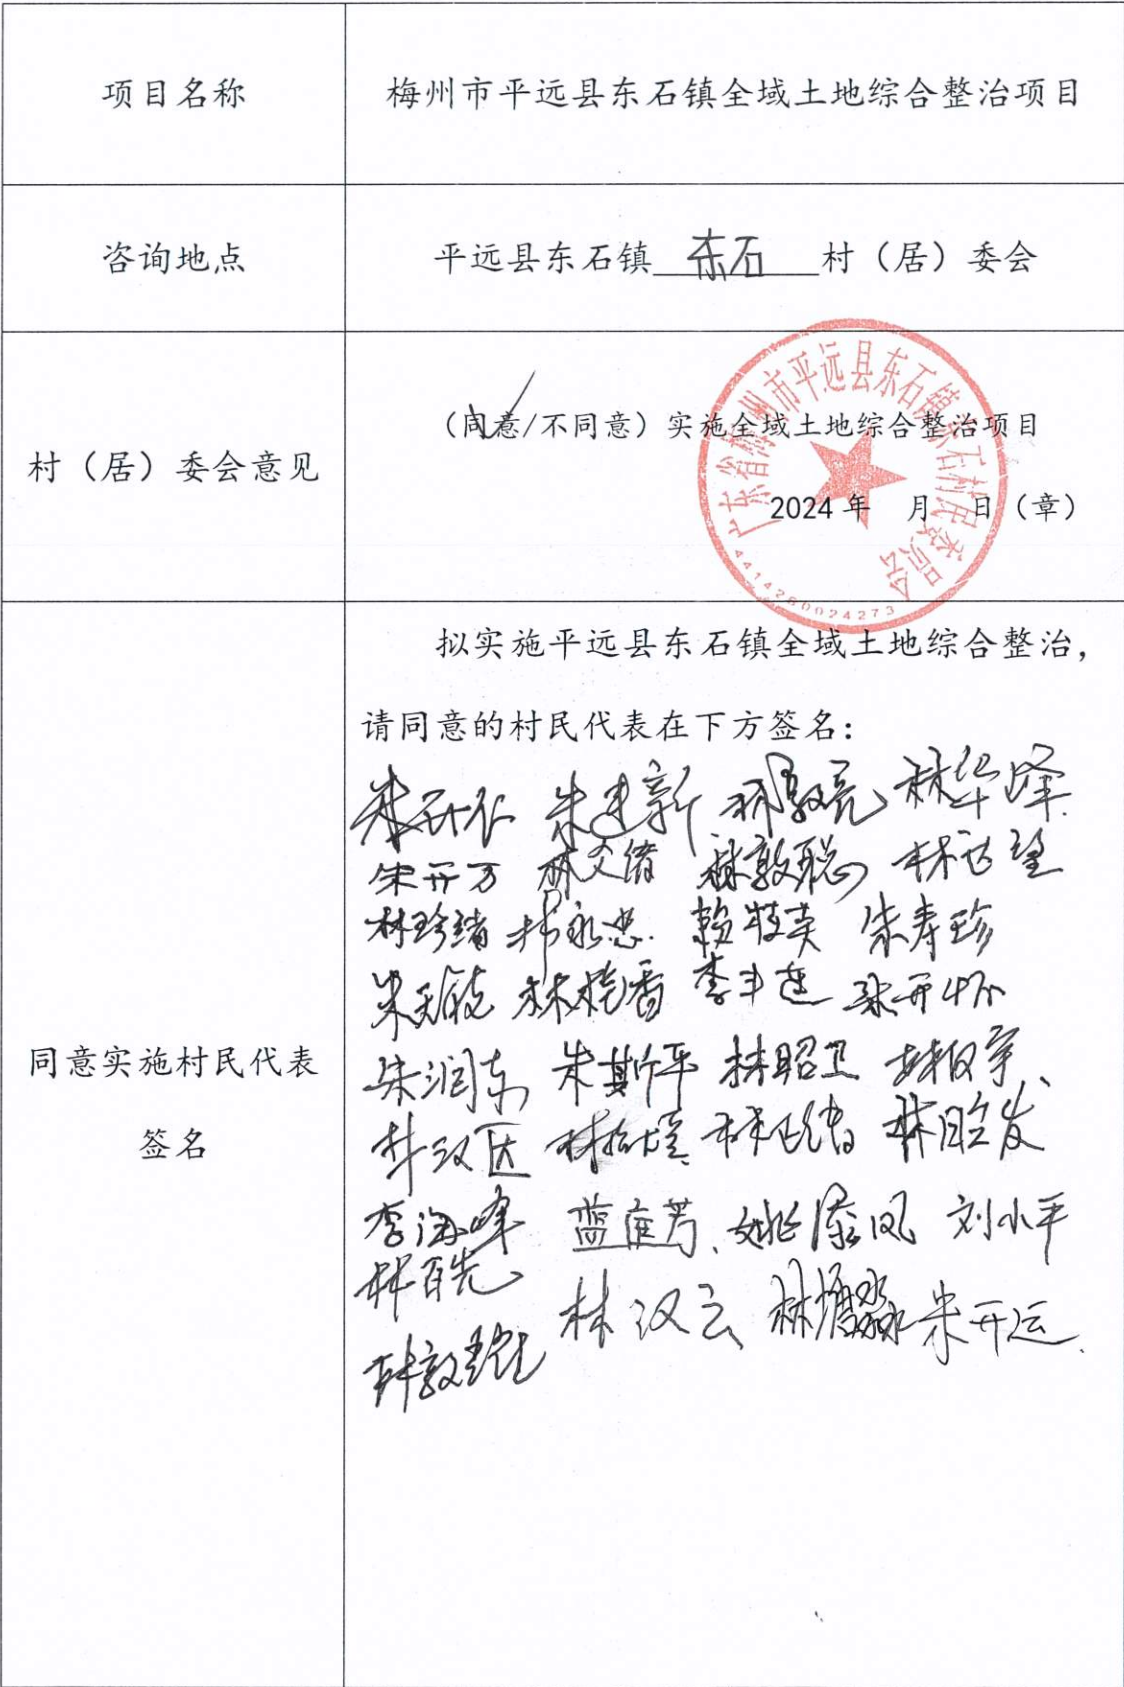 项目名称
梅州市平远县东石镇全域土地综合整治项目
咨询地点
平远县东石镇 东石 村（居）委会
村（居）委会意见
（同意/不同意）实施全域土地综合整治项目
2024年 月 日（章）
广东省梅州市平远县东石镇东石村民委员会
4414260024273
同意实施村民代表
签名
拟实施平远县东石镇全域土地综合整治，
请同意的村民代表在下方签名：
朱建新 林敦亮 林华峰
朱开万 林敦聪
林珍绪 林永忠 赖枝英 朱寿珍
林桂香 李丰连 朱开怀
朱润东 朱斯平 林昭卫
李海峰 刘小平
林百先
林汉云 朱开运